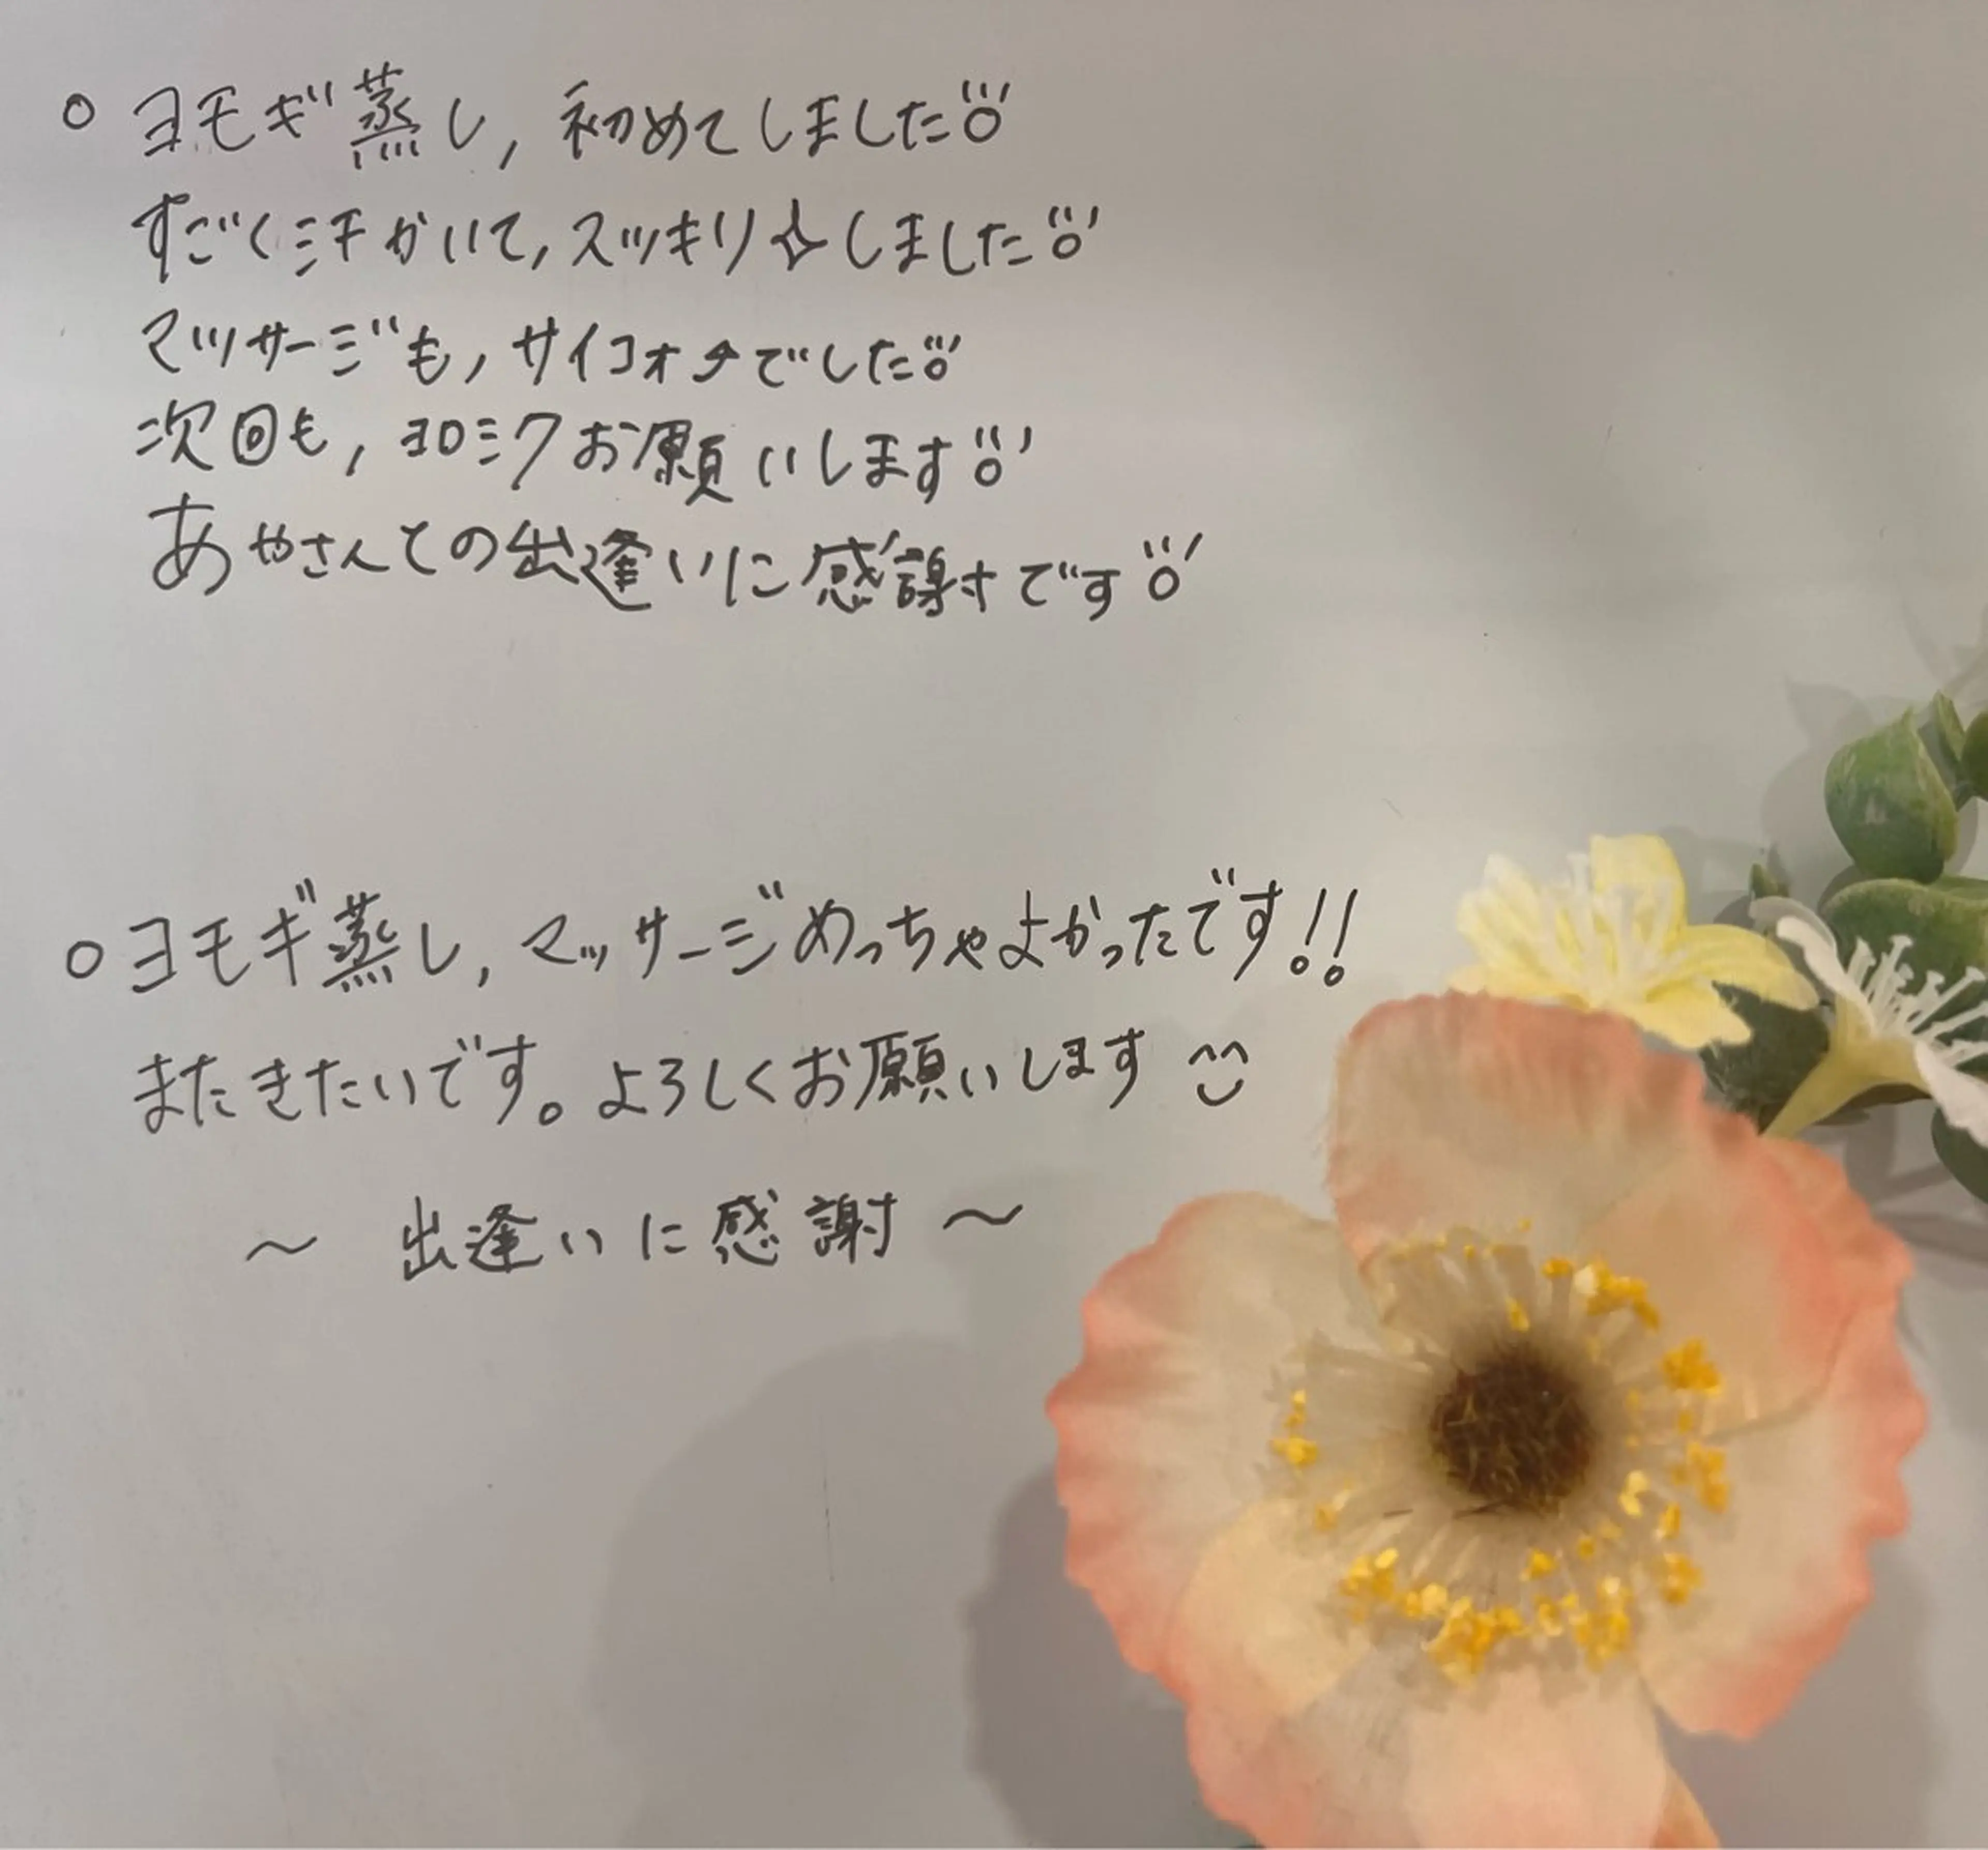 ○ヨモギ蒸し,初めてしました
すごく汗かいて,スッキリ✧しました
マッサージも,サイコオーでした
次回も,ヨロシクお願いします
あやさんとの出逢いに感謝です
○ヨモギ蒸し,マッサージめっちゃよかったです!!
またきたいです。よろしくお願いします
〜 出逢いに感謝 〜